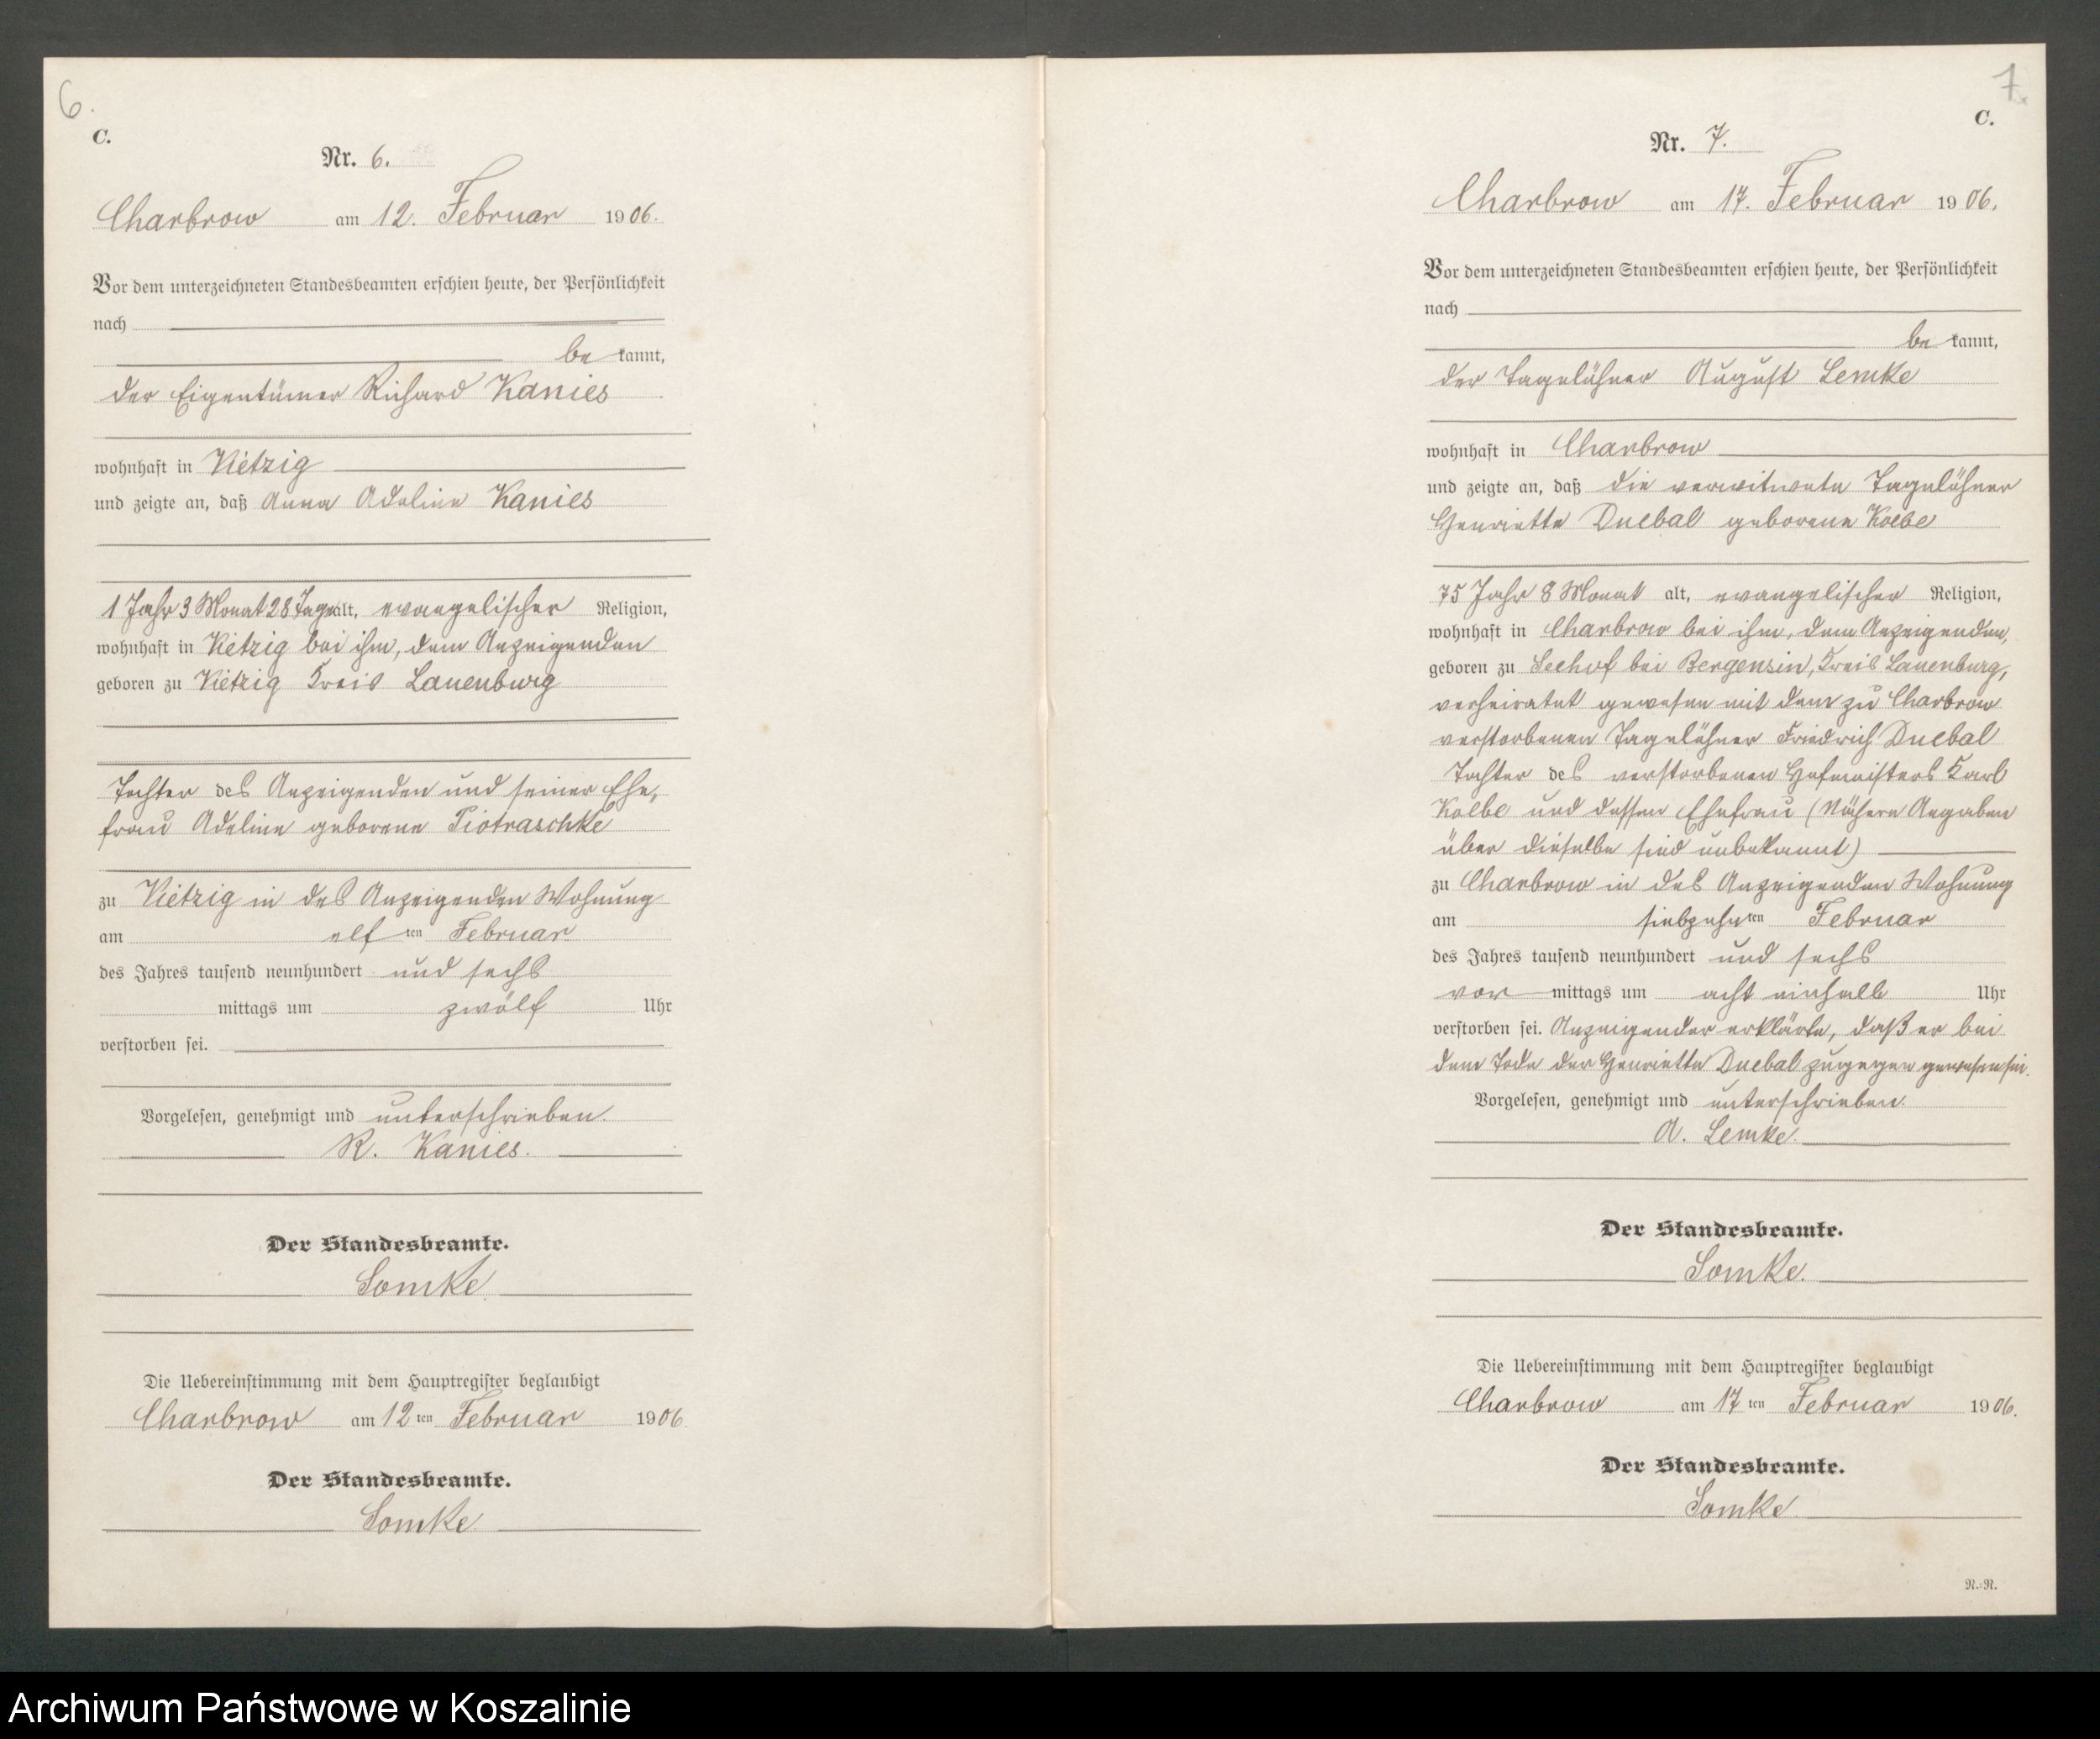 6.
C.
Nr. 6.
Charbrow am 12. Februar 1906.
Vor dem unterzeichneten Standesbeamten erschien heute, der Persönlichkeit
nach
be kannt,
der Eigentümer Richard Kanies
wohnhaft in Vietzig
und zeigte an, daß Anna Adeline Kanies
1 Jahr 3 Monat 28 Tage alt, evangelischer Religion,
wohnhaft in Vietzig bei ihm, dem Anzeigenden
geboren zu Vietzig Kreis Lauenburg
Tochter des Anzeigenden und seiner Ehe,
frau Adeline geborene Piotraschke
zu Vietzig in des Anzeigenden Wohnung
am elf ten Februar
des Jahres tausend neunhundert und sechs
mittags um zwölf Uhr
verstorben sei.
Vorgelesen, genehmigt und unterschrieben.
R. Kanies.
Der Standesbeamte.
Lomke.
Die Uebereinstimmung mit dem Hauptregister beglaubigt
Charbrow am 12 ten Februar 1906
Der Standesbeamte.
Lomke.
7.
C.
Nr. 7.
Charbrow am 17. Februar 1906.
Vor dem unterzeichneten Standesbeamten erschien heute, der Persönlichkeit
nach
be kannt,
der Tagelöhner August Lemke
wohnhaft in Charbrow
und zeigte an, daß die verwitwete Tagelöhner
Henriette Duebal geborene Kolbe
75 Jahr 8 Monat alt, evangelischer Religion,
wohnhaft in Charbrow bei ihm, dem Anzeigenden,
geboren zu Seehof bei Bergensin, Kreis Lauenburg,
verheiratet gewesen mit dem zu Charbrow
verstorbenen Tagelöhner Friedrich Duebal
Tochter des verstorbenen Hofmeisters Karl
Kolbe und dessen Ehefrau (Nähere Angaben
über dieselbe sind unbekannt)
zu Charbrow in des Anzeigenden Wohnung
am siebzehn ten Februar
des Jahres tausend neunhundert und sechs
vor mittags um acht einhalb Uhr
verstorben sei. Anzeigender erklärte, daß er bei
dem Tode der Henriette Duebal zugegen gewesen sei.
Vorgelesen, genehmigt und unterschrieben.
A. Lemke.
Der Standesbeamte.
Lomke.
Die Uebereinstimmung mit dem Hauptregister beglaubigt
Charbrow am 17 ten Februar 1906.
Der Standesbeamte.
Lomke.
N.=N.
Archiwum Państwowe w Koszalinie